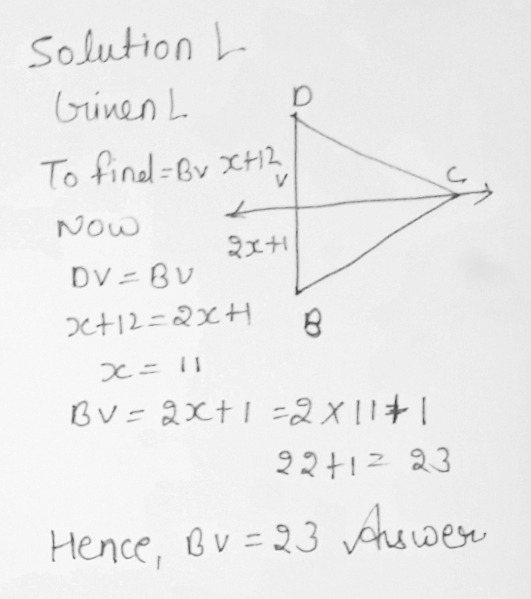 Solution L
Given L
D
To find = BV x+12
V
C
Now
2x+1
DV = BV
x+12 = 2x+1
B
x = 11
BV = 2x+1 = 2×11+1
22+1 = 23
Hence, BV = 23 Answer